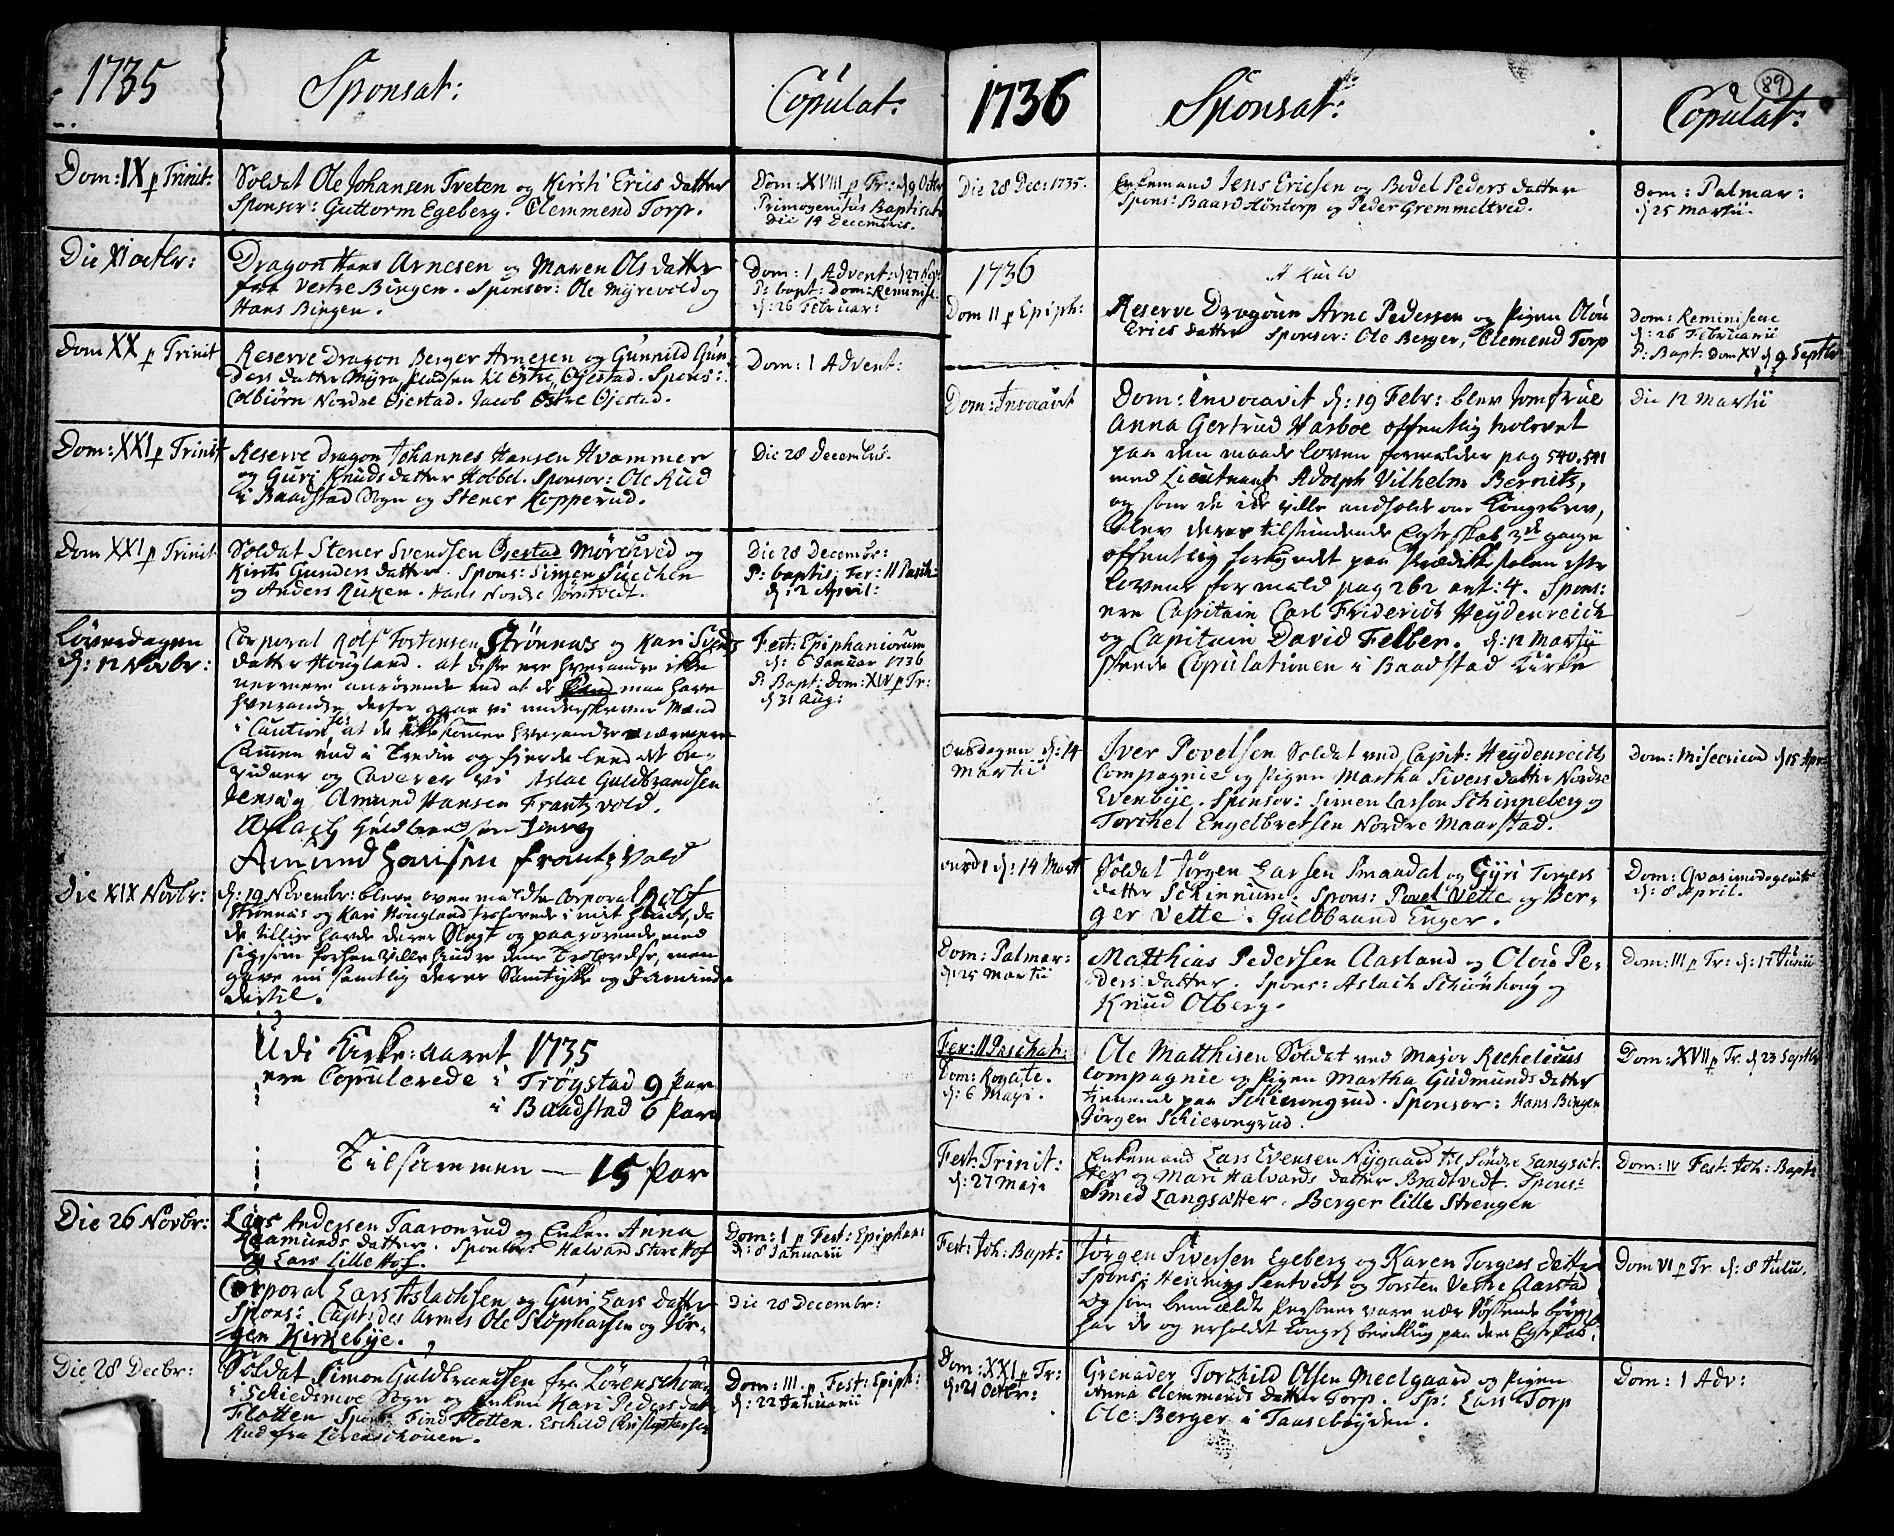 1735
Sponsat:
Copulat:
Dom: IX p Trinit:
Soldat Ole Johansen Tveten og Kirsti Erics datter
Sponsor: Guttorm Egeberg. Clemmend Torp.
Dom: XVIII p Tr: d 9 Octbr
Primogenitus Baptisat
Die 14 Decembris.
Die XI octbr:
Dragon Hans Arnesen og Maren Ols datter
fra Vestre Bingen. Sponsor: Ole Myrevold og
Hans Bingen.
Dom: 1 Advent: d 27 Nov:
P: bapt: Dom: Reminisc:
d: 26 Februar:
Dom XX p Trinit
Reserve Dragon Berger Arnesen og Gunnild Gun
ders datter Myra, pladsen til Østre Øjestad. Spons:
Colbiørn Nordre Øiestad. Jacob Østre Øjestad.
Dom: 1 Advent:
Dom: XXI p Trinit
Reserve Dragon Johannes Hansen Hvammer
og Guri Knuds datter Hobbel. Sponsor: Ole Rud
i Baadstad Sogn og Stener Kopperud.
Die 28 Decembris.
Dom XXI p Trinit
Soldat Stener Svendsen Øjestad Mørchved og
Kirsti Gunders datter. Spons: Simen Suechen
og Anders Kuken. Hans Nordre Jørntvedt.
Die 28 Decembr:
P: baptis: Fer: II Pasch:
d: 2 April:
Løverdagen
d: 12 Novbr:
Corporal Rolf Tortensen Strønnas og Kari Svends
datter Hougland. at disse ere hverandre ikke
nermere anrørende end at de maa have
hverandre derfor gaar vi underskrevne Mænd
i Caution, at de ikke komme hverandre nærmere
Sammen end i Tredie og fierde leed det be-
vidner og Caverer vi Aslac Guldbrandsen
Amund Hansen Frantzvold.
Aslach Guldbrandsen
Amund Hansen Frantzvold
Fest: Epiphaniorum
d: 6 Januar 1736
P: Bapt: Dom: XIV p Tr:
d 31 Aug:
Die XIX Novbr:
d: 19 Novembr: bleve ovenmældte Corporal Rolf
Strønnas og Kari Hougland trolovede i mit huus, da
de tillige havde deres Slegt og paarørende med
sig som forhen ville hindre denne Trolovelse, men
gave nu samtlig deres Samtykke og Jaminde
dertil.
Udi Kirke: aaret 1735
ere Copulerede i Trøgstad 9 Par
i Baadstad 6 Par
Tilsammen — 15 Par
Die 26 Novbr:
Lars Andersen Taaronrud og Enken Anna
Aamunds datter. Sponsor: Halvard Store Hof
og Lars Lille Hof.
Dom: 1 p Fest: Epiphan:
d: 8 Januarii
Corporal Lars Aslachsen og Guri Lars datter
Spons: Capt: des Armes Ole Stopharsen og Jør-
gen Kirkebye.
Die 28 Decembr:
Die 28 Decbr:
Soldat Simon Guldbrandsen fra Lørenschouen
i Schiedsmoe Sogn og Enken Kari Peders dat
Flotten Spons: Find Flotten. Eschild Christophersen
Rud fra Lørenschouen.
Dom: III p Fest: Epiph:
d: 22 Januarii
1736
Sponsat:
Copulat:
89
Die 28 Dec: 1735.
Enkemand Jens Ericsen og Bodel Peders datter
Spons: Baard Høntorp og Peder Gremmeltved.
Dom: Palmar:
d 25 Martii.
1736
Dom II p Epiph:
Reserve Dragoun Arne Pedersen og Pigen Olou
Erics datter Sponsor: Ole Berger, Clemend Torp
Dom: Reminiscere
d: 26 Februarii
P: Bapt: Dom XV d 9 Septbr
Dom: Invocavit
Dom: Invocavit d: 19 Febr: blev Jomfrue
Anna Gertrud Harboe offentlig trolovet
paa den maade loven formelder pag 540.541
med Lieutnant Adolph Vilhelm Bernitz,
og som de ikke ville andholde om Kongebrev,
blev deres tilstundende Egteskab 3de gange
offentlig forkyndet paa Prædikestolen efter
lovens formeld pag 262 art: 4. Spons:
ere Capitain Carl Friderich Heydenreich
og Capitain David Felber. d: 12 Martii
skeede Copulationen i Baadstad Kirke
Die 12 Martii
Onsdagen d: 14
Martii
Iver Povelsen Soldat ved Capit: Heydenreichs
Compagnie og Pigen Martha Sivers datter Nordre
Evenbye. Sponsor: Simen Larsøn Schinneberg og
Torchel Engelbretsen Nordre Maarstad.
Dom: Misericord d 15 Apr
onsd: d: 14 Mart
Soldat Jørgen Larsen Smaadal og Gyri Torgers
datter Schinnum. Spons: Povel Vette og Ber-
ger Vette. Guldbrand Enger.
Dom: Qvasimodogenit
d: 8 April.
Dom: Palmar:
d 25 Martii
Matthias Pedersen Aasland og Olou Pe-
ders datter. Spons: Aslach Schiønhoug og
Knud Olberg.
Dom: III p Tr: d: 17 Junii
Fer: II Paschat:
Dom: Rogate.
d: 6 Maji.
Ole Matthisen Soldat ved Major Recheleius
Compagnie og Pigen Martha Gudmunds datter
tienende paa Schierongrud. Sponsor: Hans Bingen
Jørgen Schierongrud.
Dom: XVII p Tr. d 23 Septbr
Fest: Trinit:
d: 27 Maji
Enkemand Lars Evensen Nygaard til Søndre Langsæt
ter og Mari Halvards datter Bradtvedt. Spons:
Smed Langsætter. Berger Lille Strengen
Dom: IV Fest: Joh: Bapt:
Fest: Joh: Bapt:
Jørgen Siversen Egeberg og Karen Torgers datter
Spons: Henning Sentvedt og Torsten Vestre Aarstad
og som bemeldte Persone vare nær Søskende børn
har de og erholdet Kongl: bevilling paa deres Egteskab.
Dom VI p Tr d: 8 Julii.
Dom: XXI p Tr:
d: 21 Octbr:
Grenader Torchild Olsen Meelgaard og Pigen
Anna Clemmends datter Torp. Sp: Lars Torp
Ole Berger i Taasebøyden.
Dom: 1 Adv: